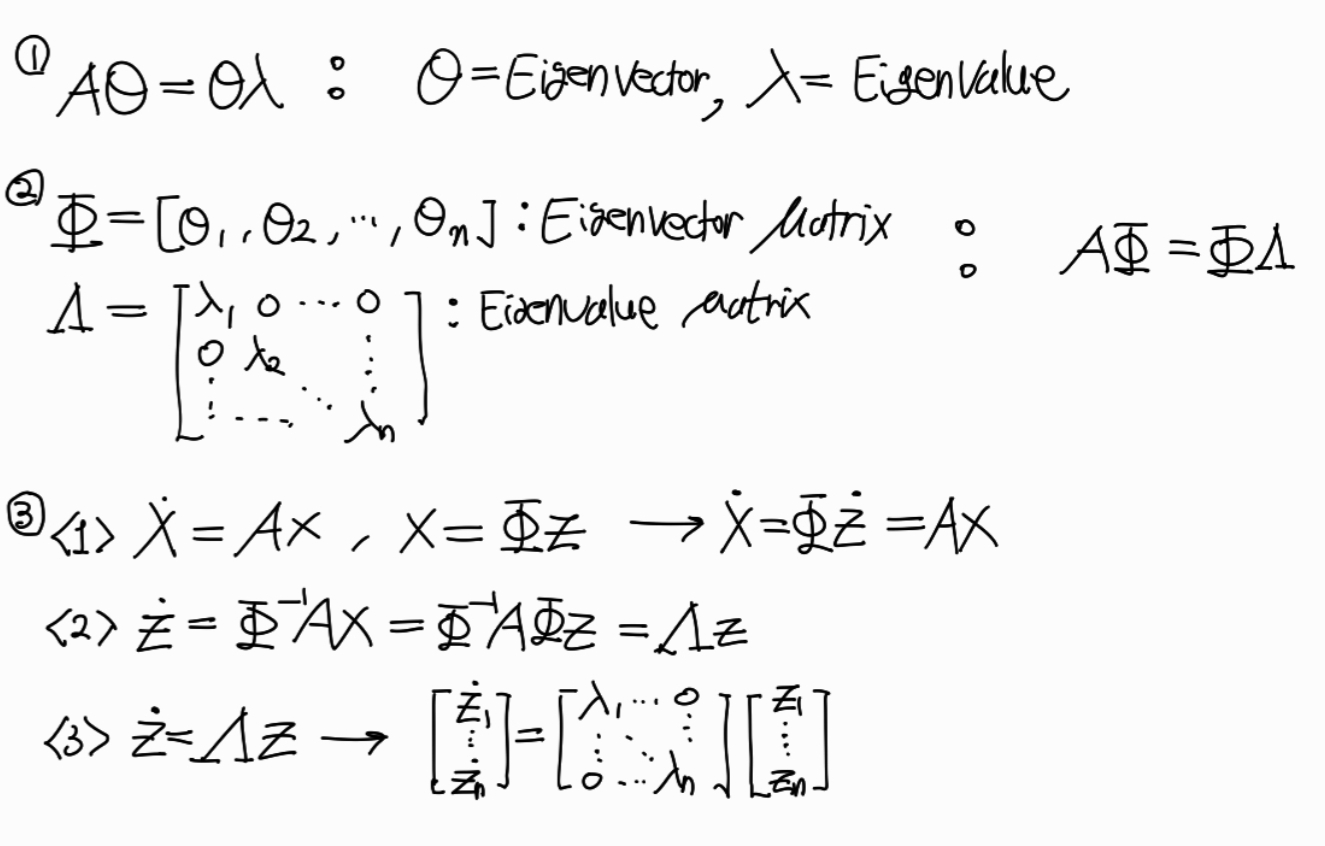 ① Aθ = θλ : θ = Eigenvector, λ = Eigenvalue
② Φ = [θ₁, θ₂, ⋯, θₙ] : Eigenvector Matrix : AΦ = ΦΛ
Λ = [λ₁ 0 ⋯ 0 : Eigenvalue matrix
0 λ₂ ⋮
⋮ ⋯ ⋱ λₙ]
③ <1> Ẋ = AX , X = ΦZ → Ẋ = ΦŻ = AX
<2> Ż = Φ⁻¹AX = Φ⁻¹AΦZ = ΛZ
<3> Ż = ΛZ → [Ż₁ ⋮ Żₙ] = [λ₁ ⋯ 0 ⋮ ⋱ ⋮ 0 ⋯ λₙ] [Z₁ ⋮ Zₙ]